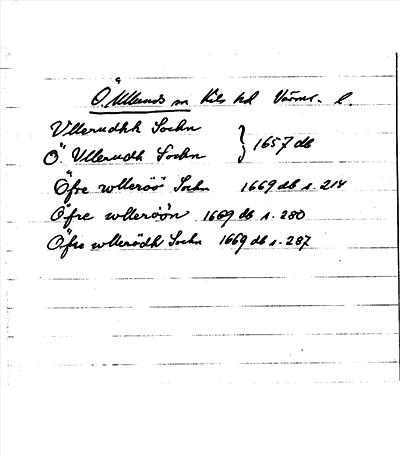 Ö. Ullerud sn Kils hd Värml. l.
Vllerudhk Sochn
Ö. Vllerudh Sochn } 1657 db
Öfre wlleröö Sochn 1669 db s. 214
Öfre wlleröön 1669 db s. 280
Öfre wllerödh Sochn 1669 db s. 287